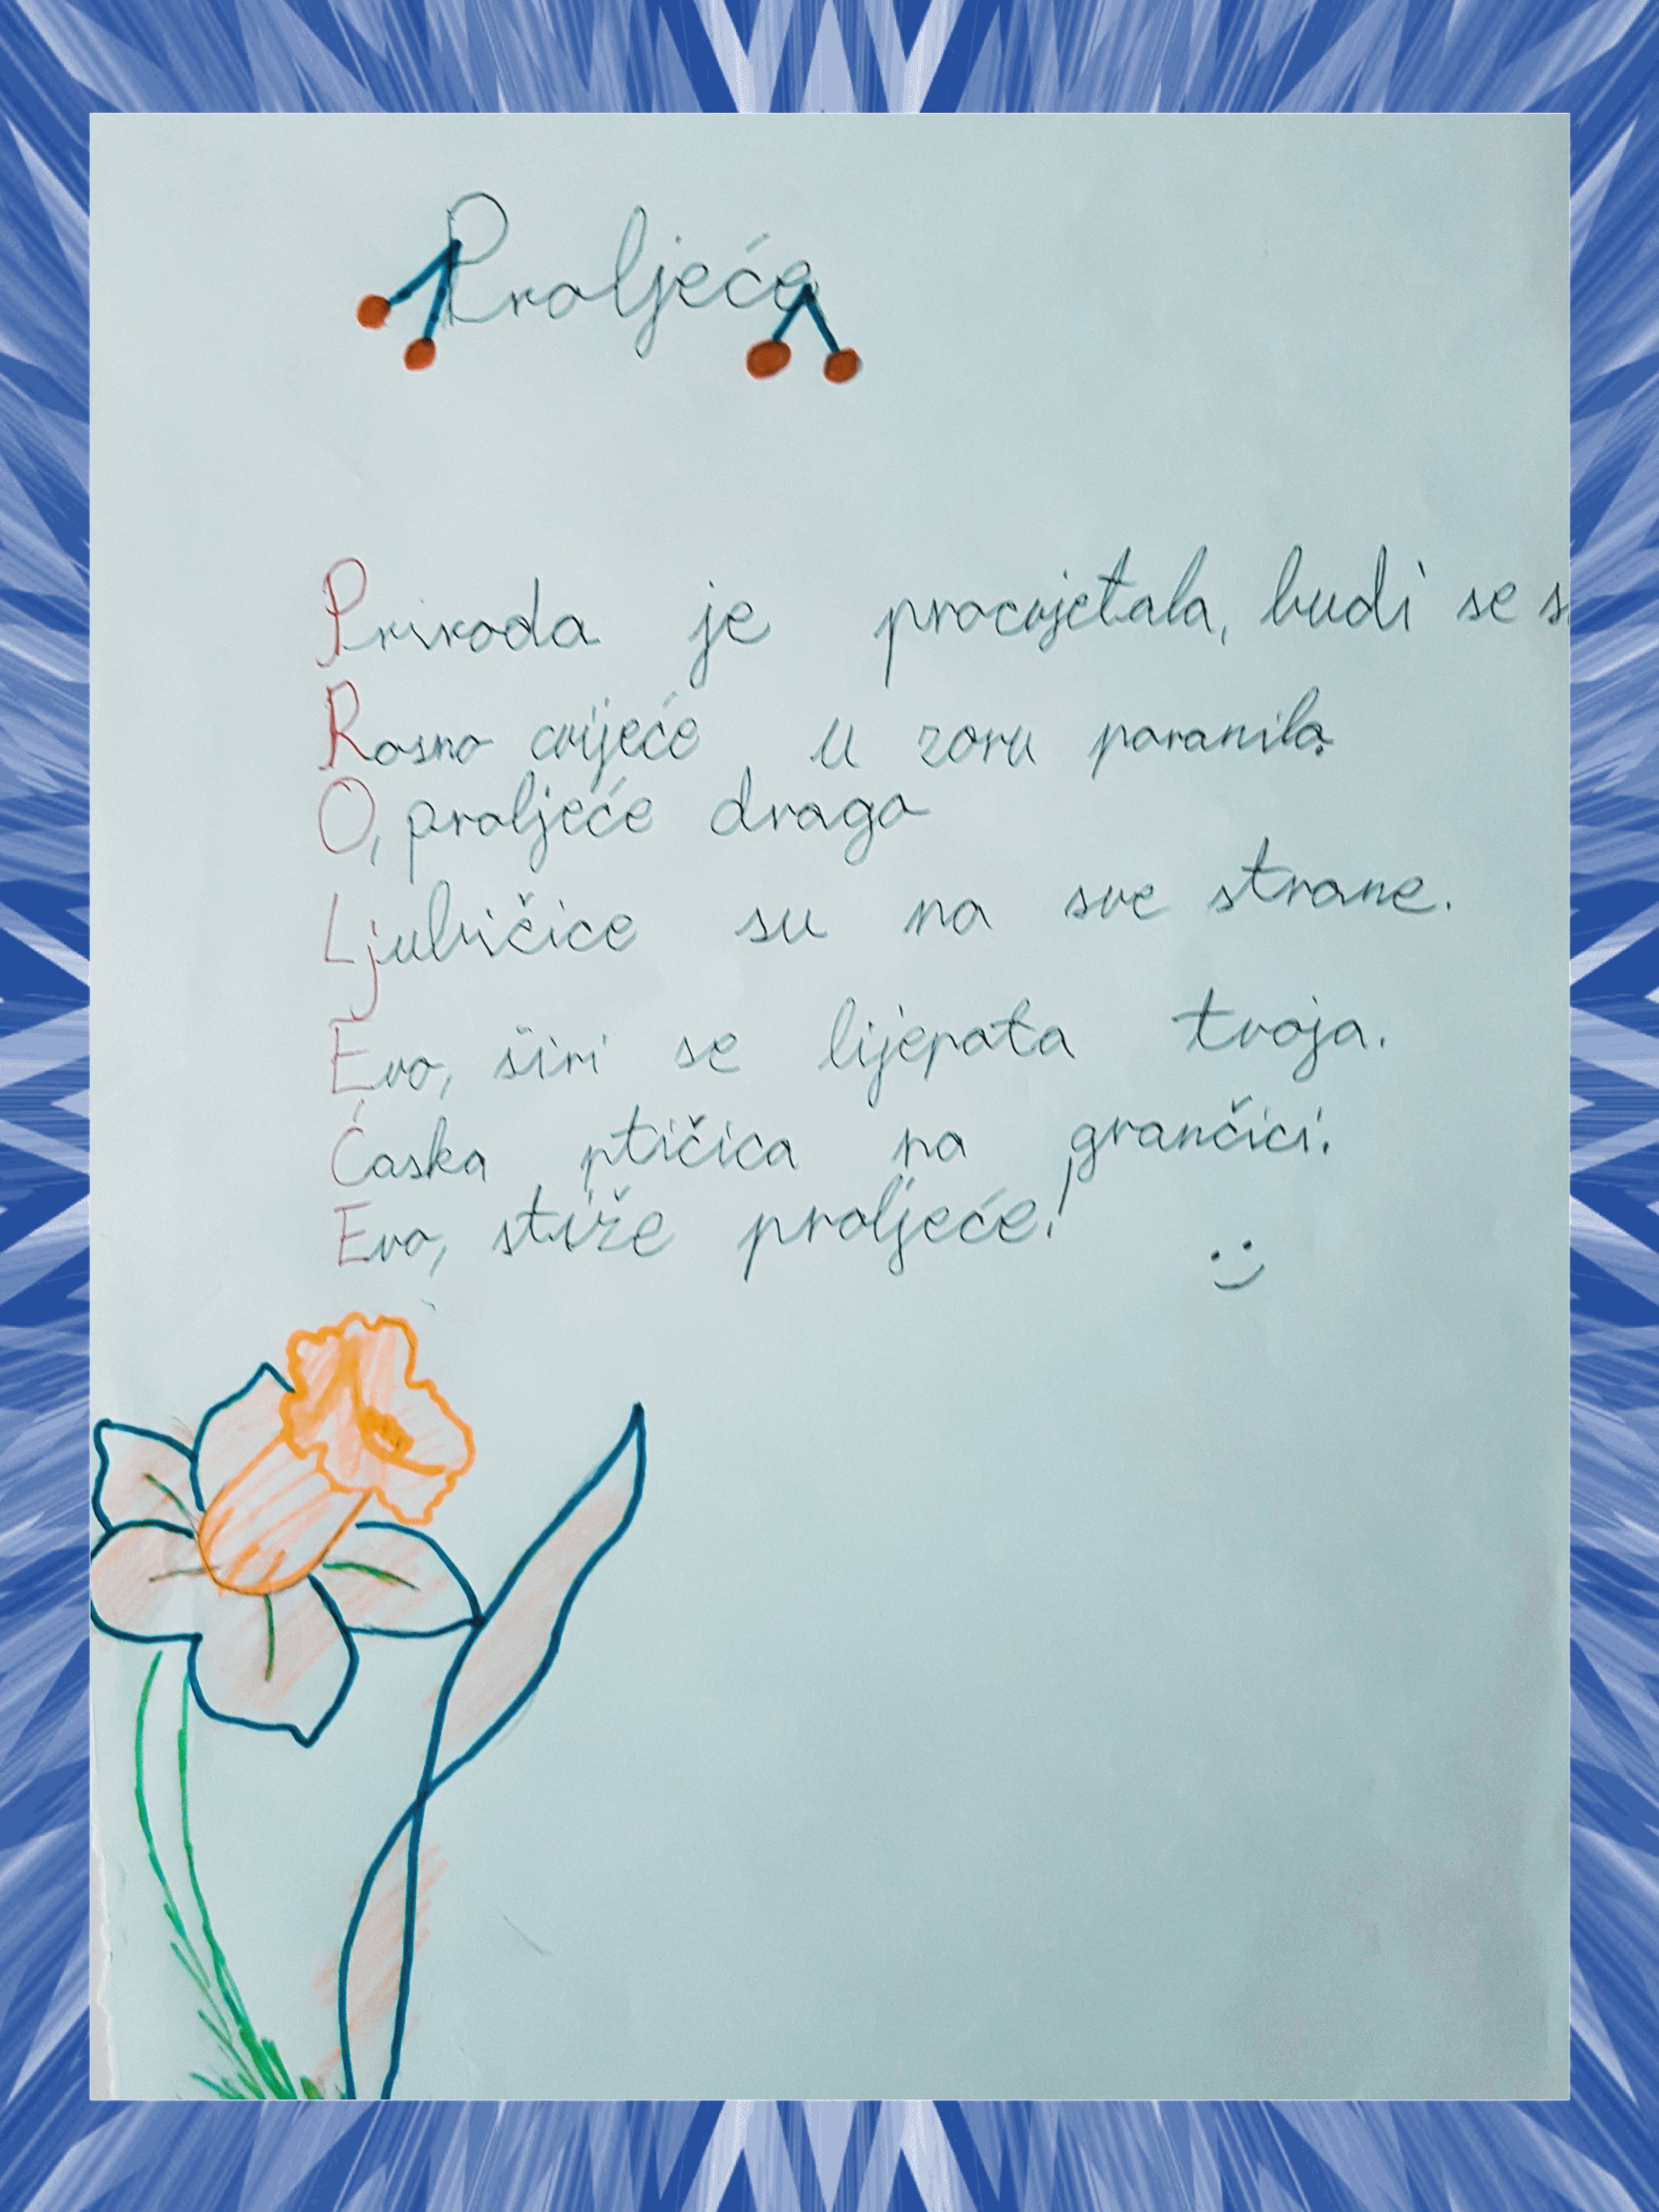 Proljeće
Priroda je procvjetala, budi se
Rosno cvijeće u zoru poranilo.
O, proljeće drago
Ljubičice su na sve strane.
Evo, širi se lijepota tvoja.
Ćaska ptičica na grančici.
Evo, stiže proljeće! :)